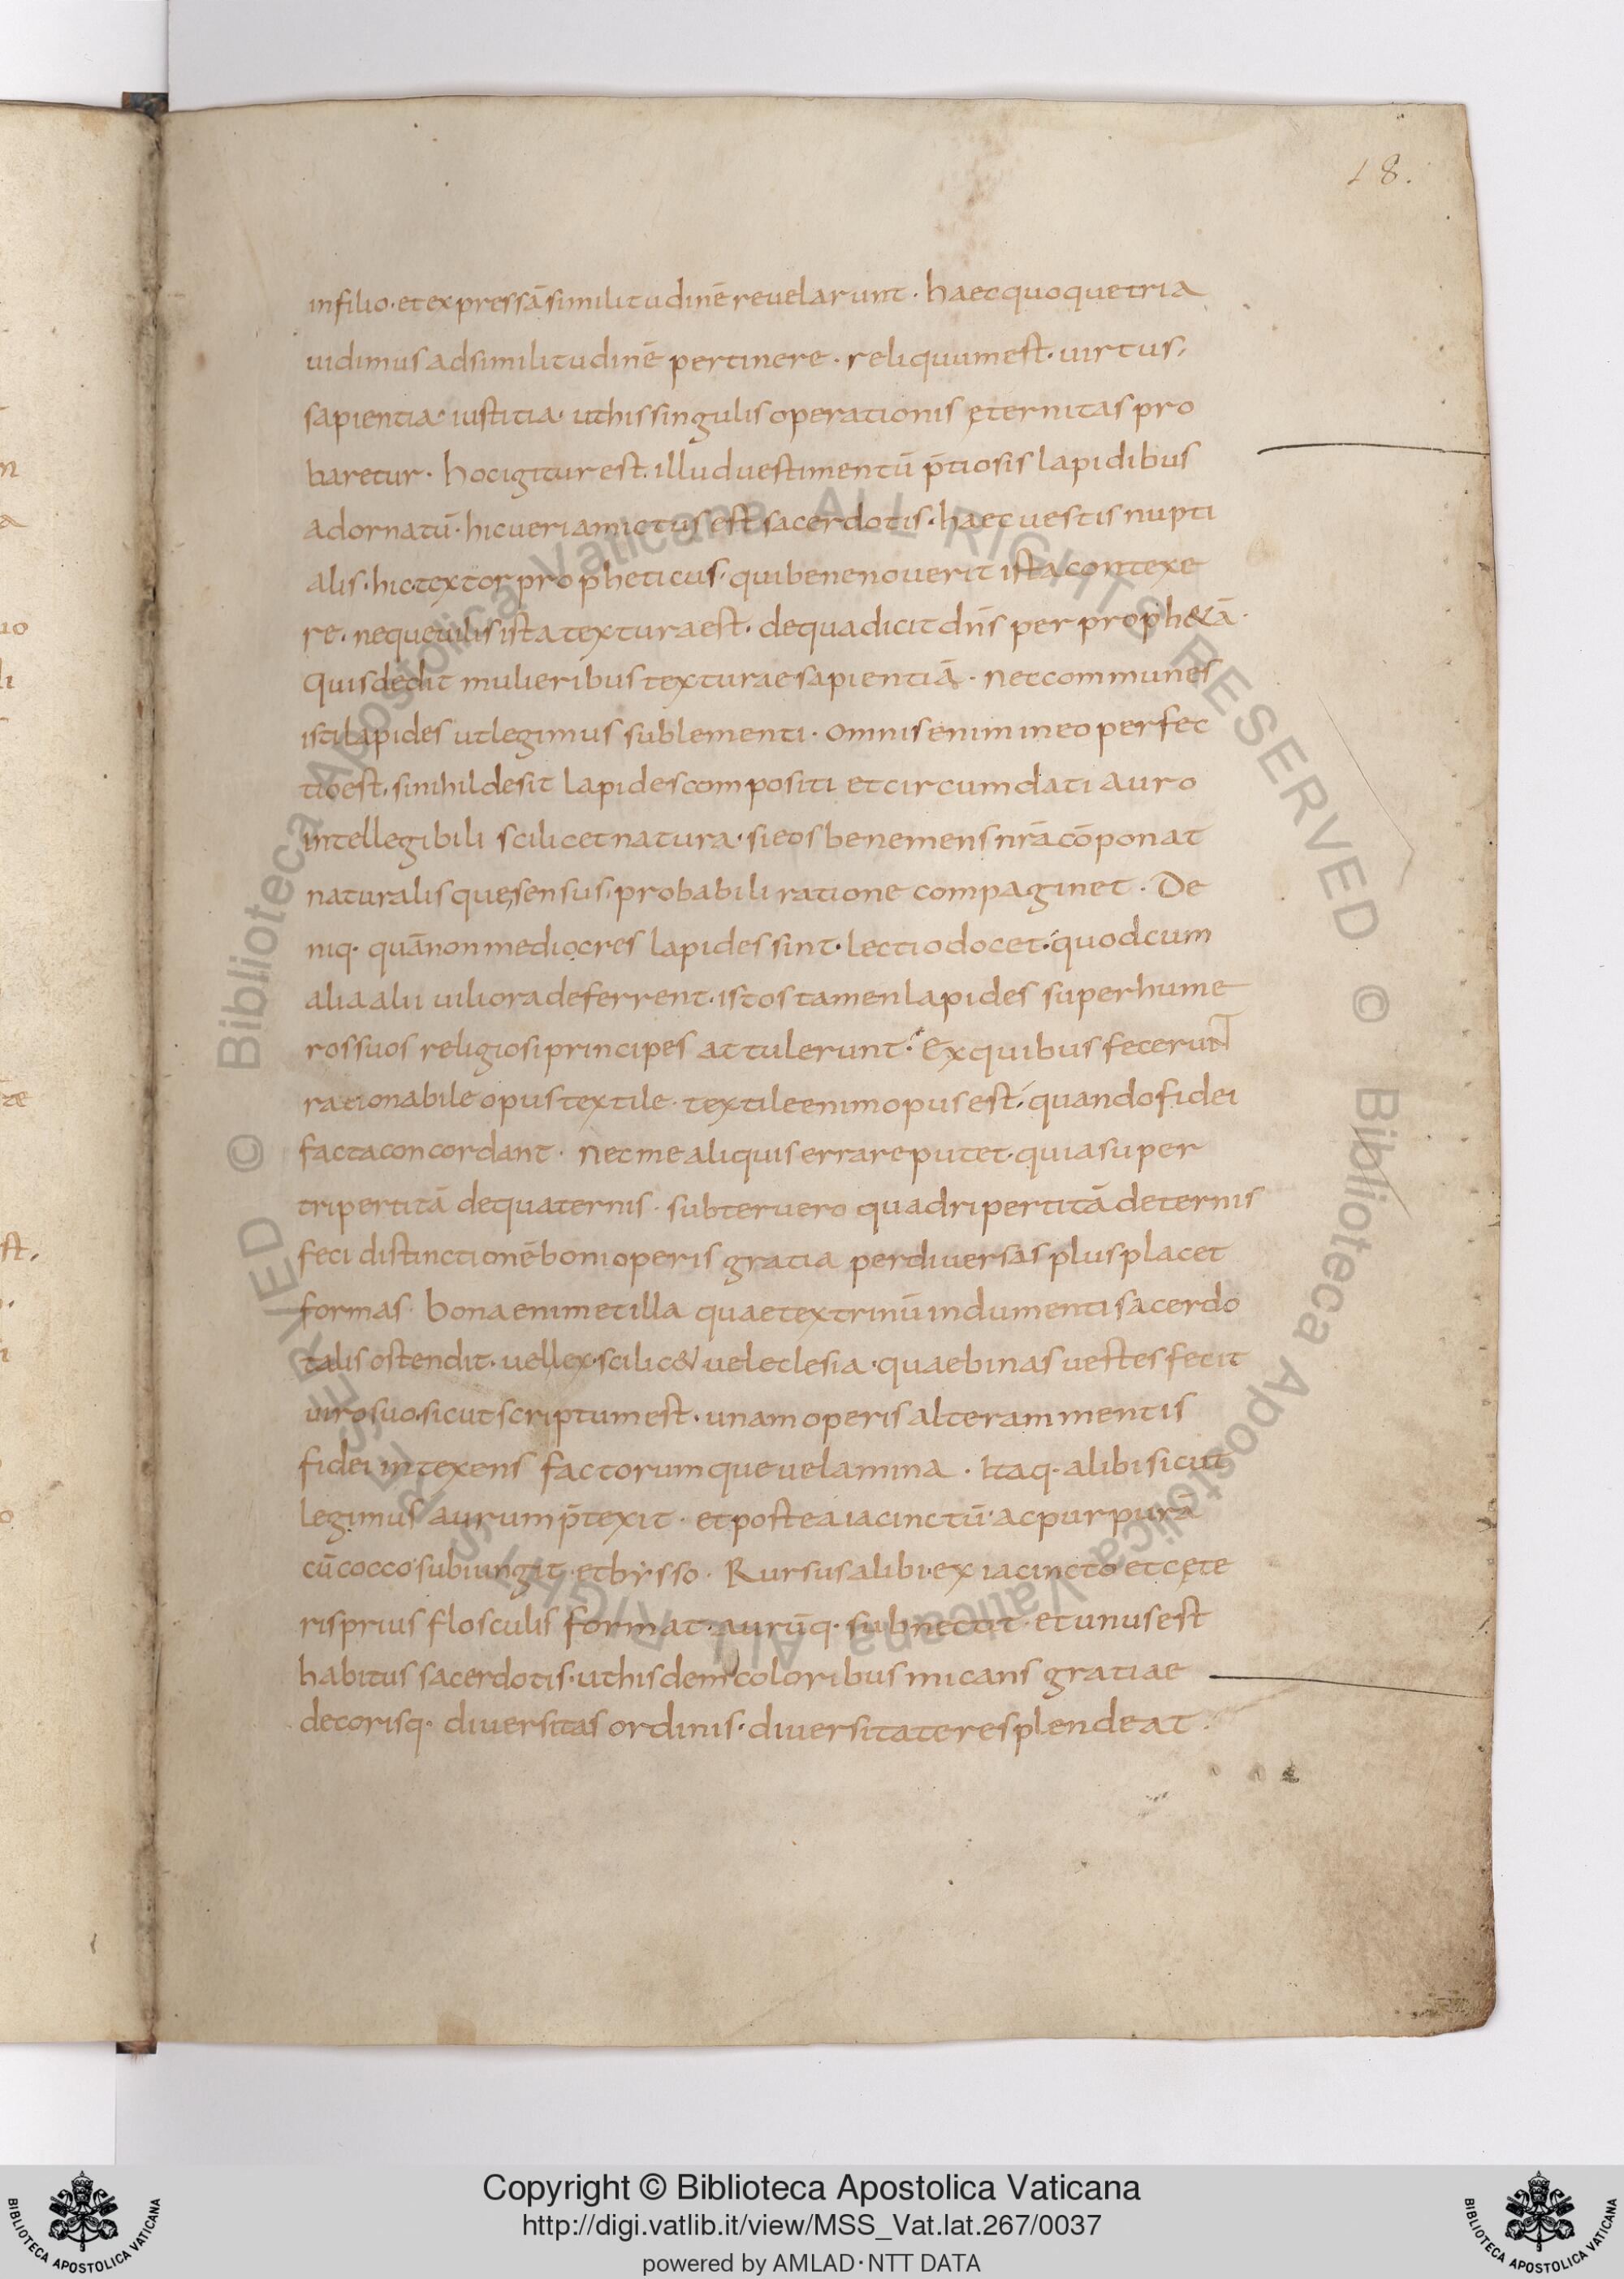 18.
infilio · et expressā similitudinē revelarunt · haec quoque tria
vidimus ad similitudinē pertinere · reliquum est · virtus,
sapientia · iustitia · ut his singulis operationis ęternitas pro
baretur · hoc igitur est · illud vestimentū p̄tiosis lapidibus
adornatū · hic veri amictus est sacerdotis · haec vestis nupti
alis · hic textor propheticus · qui bene noverit ista contexe
re · neque vilis ista textura est · de qua dicit dn̄s per proph&ā ·
Quis dedit mulieribus texturae sapientiā · nec communes
isti lapides ut legimus sublementi · omnis enim in eo perfec
tio est · si nihil desit lapides compositi et circumdati auro
intellegibili scilicet natura · si eos bene mens nr̄a cōponat
naturalisque sensus probabili ratione compaginet · De
niq· quā non mediocres lapides sint · lectio docet · quod cum
alia alii viliora deferrent · istos tamen lapides super hume
ros suos religiosi principes attulerunt · Ex quibus fecerunt
rationabile opus textile · textile enim opus est, quando fidei
facta concordant · nec me aliquis errare putet · quia super
tripertitā de quaternis · subter vero quadripertitā de ternis
feci distinctionē boni operis gratia per diversas plus placet
formas · bona enim et illa quae textrinū indumenti sacerdo
talis ostendit · vel lex · scilic& vel eclesia · quae binas vestes fecit
viro suo · sicut scriptum est · unam operis alteram mentis
fidei intexens factorumque velamina · Itaq· alibi sicut
legimus aurum p̄texit · et postea iacinctū · ac purpurā
cū cocco subiungit et bysso · Rursus alibi · ex iacincto et cęte
ris prius flosculis format · aurūq· subnectit · et unus est
habitus sacerdotis · ut hisdem coloribus micans gratiae
decorisq· diversitas ordinis · diversitate resplendeat ·
© Biblioteca Apostolica Vaticana ALL RIGHTS RESERVED © Biblioteca Apostolica Vaticana ALL RIGHTS RESERVED
Copyright © Biblioteca Apostolica Vaticana
http://digi.vatlib.it/view/MSS_Vat.lat.267/0037
powered by AMLAD·NTT DATA
BIBLIOTECA APOSTOLICA VATICANA
BIBLIOTECA APOSTOLICA VATICANA